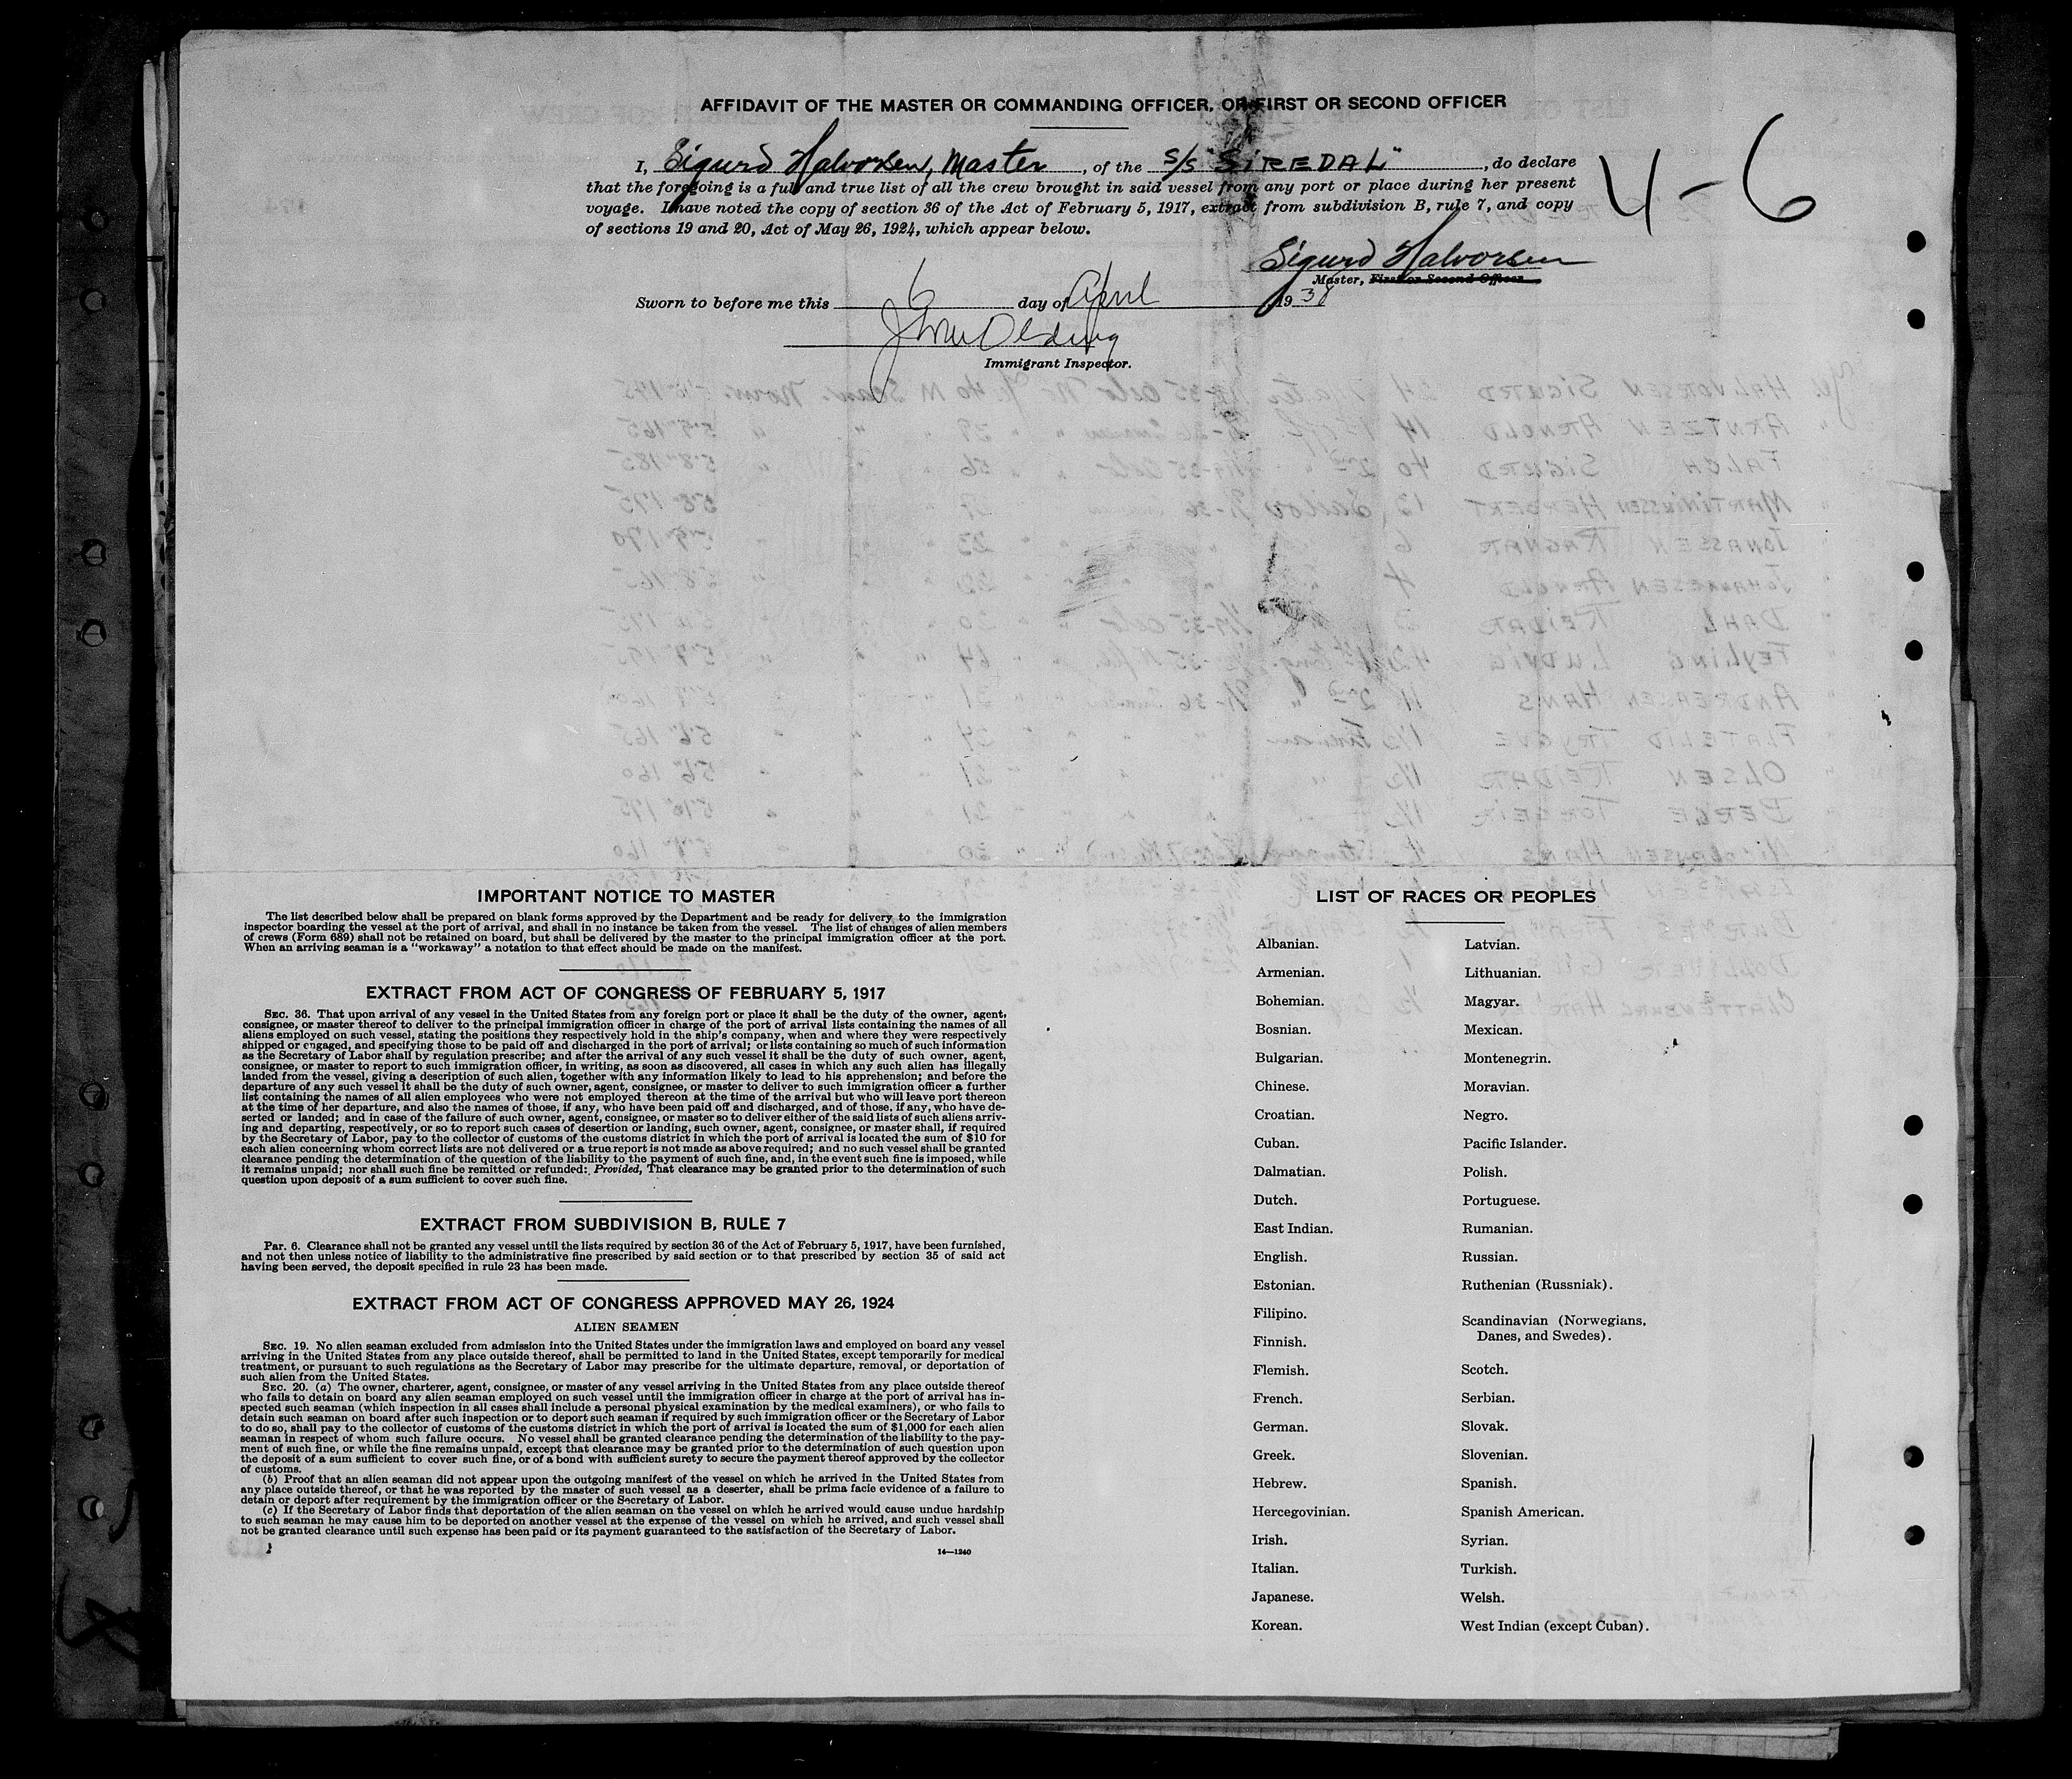 AFFIDAVIT OF THE MASTER OR COMMANDING OFFICER, OR FIRST OR SECOND OFFICER
I, Sigurd Halvorsen, Master , of the S/S "SIREDAL" , do declare
that the foregoing is a full and true list of all the crew brought in said vessel from any port or place during her present
voyage. I have noted the copy of section 36 of the Act of February 5, 1917, extract from subdivision B, rule 7, and copy
of sections 19 and 20, Act of May 26, 1924, which appear below.
4-6
Sigurd Halvorsen
Master, First or Second Officer.
Sworn to before me this 6 day of April , 1938
Immigrant Inspector.
IMPORTANT NOTICE TO MASTER
The list described below shall be prepared on blank forms approved by the Department and be ready for delivery to the immigration
inspector boarding the vessel at the port of arrival, and shall in no instance be taken from the vessel. The list of changes of alien members
of crews (Form 689) shall not be retained on board, but shall be delivered by the master to the principal immigration officer at the port.
When an arriving seaman is a "workaway" a notation to that effect should be made on the manifest.
EXTRACT FROM ACT OF CONGRESS OF FEBRUARY 5, 1917
SEC. 36. That upon arrival of any vessel in the United States from any foreign port or place it shall be the duty of the owner, agent,
consignee, or master thereof to deliver to the principal immigration officer in charge of the port of arrival lists containing the names of all
aliens employed on such vessel, stating the positions they respectively hold in the ship's company, when and where they were respectively
shipped or engaged, and specifying those to be paid off and discharged in the port of arrival; or lists containing so much of such information
as the Secretary of Labor shall by regulation prescribe; and after the arrival of any such vessel it shall be the duty of such owner, agent,
consignee, or master to report to such immigration officer, in writing, as soon as discovered, all cases in which any such alien has illegally
landed from the vessel, giving a description of such alien, together with any information likely to lead to his apprehension; and before the
departure of any such vessel it shall be the duty of such owner, agent, consignee, or master to deliver to such immigration officer a further
list containing the names of all alien employees who were not employed thereon at the time of the arrival but who will leave port thereon
at the time of her departure, and also the names of those, if any, who have been paid off and discharged, and of those, if any, who have de-
serted or landed; and in case of the failure of such owner, agent, consignee, or master so to deliver either of the said lists of such aliens arriv-
ing and departing, respectively, or so to report such cases of desertion or landing, such owner, agent, consignee, or master shall, if required
by the Secretary of Labor, pay to the collector of customs of the customs district in which the port of arrival is located the sum of $10 for
each alien concerning whom correct lists are not delivered or a true report is not made as above required; and no such vessel shall be granted
clearance pending the determination of the question of the liability to the payment of such fine, and, in the event such fine is imposed, while
it remains unpaid; nor shall such fine be remitted or refunded: Provided, That clearance may be granted prior to the determination of such
question upon deposit of a sum sufficient to cover such fine.
EXTRACT FROM SUBDIVISION B, RULE 7
PAR. 6. Clearance shall not be granted any vessel until the lists required by section 36 of the Act of February 5, 1917, have been furnished,
and not then unless notice of liability to the administrative fine prescribed by said section or to that prescribed by section 35 of said act
having been served, the deposit specified in rule 23 has been made.
EXTRACT FROM ACT OF CONGRESS APPROVED MAY 26, 1924
ALIEN SEAMEN
SEC. 19. No alien seaman excluded from admission into the United States under the immigration laws and employed on board any vessel
arriving in the United States from any place outside thereof, shall be permitted to land in the United States, except temporarily for medical
treatment, or pursuant to such regulations as the Secretary of Labor may prescribe for the ultimate departure, removal, or deportation of
such alien from the United States.
SEC. 20. (a) The owner, charterer, agent, consignee, or master of any vessel arriving in the United States from any place outside thereof
who fails to detain on board any alien seaman employed on such vessel until the immigration officer in charge at the port of arrival has in-
spected such seaman (which inspection in all cases shall include a personal physical examination by the medical examiners), or who fails to
detain such seaman on board after such inspection or to deport such seaman if required by such immigration officer or the Secretary of Labor
to do so, shall pay to the collector of customs of the customs district in which the port of arrival is located the sum of $1,000 for each alien
seaman in respect of whom such failure occurs. No vessel shall be granted clearance pending the determination of the liability to the pay-
ment of such fine, or while the fine remains unpaid, except that clearance may be granted prior to the determination of such question upon
the deposit of a sum sufficient to cover such fine, or of a bond with sufficient surety to secure the payment thereof approved by the collector
of customs.
(b) Proof that an alien seaman did not appear upon the outgoing manifest of the vessel on which he arrived in the United States from
any place outside thereof, or that he was reported by the master of such vessel as a deserter, shall be prima facie evidence of a failure to
detain or deport after requirement by the immigration officer or the Secretary of Labor.
(c) If the Secretary of Labor finds that deportation of the alien seaman on the vessel on which he arrived would cause undue hardship
to such seaman he may cause him to be deported on another vessel at the expense of the vessel on which he arrived, and such vessel shall
not be granted clearance until such expense has been paid or its payment guaranteed to the satisfaction of the Secretary of Labor.
14—1240
LIST OF RACES OR PEOPLES
Albanian.
Armenian.
Bohemian.
Bosnian.
Bulgarian.
Chinese.
Croatian.
Cuban.
Dalmatian.
Dutch.
East Indian.
English.
Estonian.
Filipino.
Finnish.
Flemish.
French.
German.
Greek.
Hebrew.
Hercegovinian.
Irish.
Italian.
Japanese.
Korean.
Latvian.
Lithuanian.
Magyar.
Mexican.
Montenegrin.
Moravian.
Negro.
Pacific Islander.
Polish.
Portuguese.
Rumanian.
Russian.
Ruthenian (Russniak).
Scandinavian (Norwegians,
Danes, and Swedes).
Scotch.
Serbian.
Slovak.
Slovenian.
Spanish.
Spanish American.
Syrian.
Turkish.
Welsh.
West Indian (except Cuban).